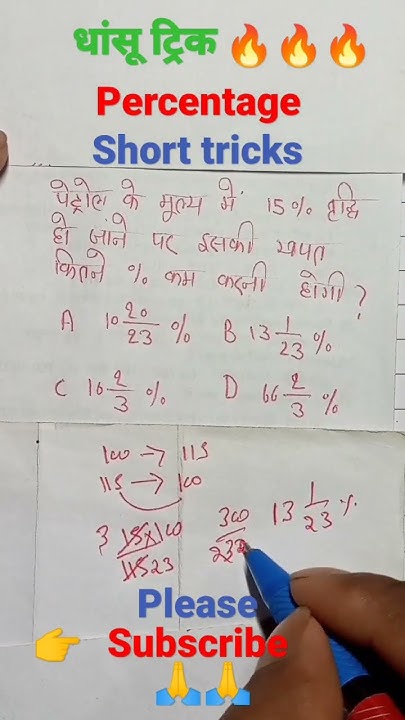 धांसू ट्रिक 🔥🔥🔥
Percentage
Short tricks
पेट्रोल के मूल्य में 15% वृद्धि
हो जाने पर इसकी खपत
कितने % कम करनी होगी ?
A 10 20/23 % B 13 1/23 %
C 16 2/3 % D 66 2/3 %
100 → 115
115 → 100
3 15×100 / 115 23
300 / 23 13 1/23 %
Please
👉 Subscribe
🙏🙏